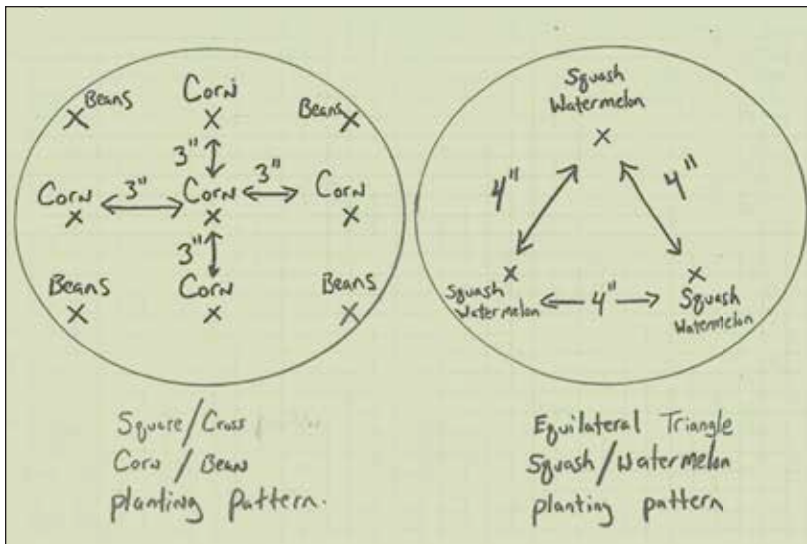 Beans Corn Beans
3"
Corn 3" Corn 3" Corn
3"
Beans Corn Beans
Square/Cross
Corn/Bean
planting pattern.
Squash
Watermelon
4" 4"
Squash
Watermelon
4"
Squash
Watermelon
Equilateral Triangle
Squash/Watermelon
planting pattern